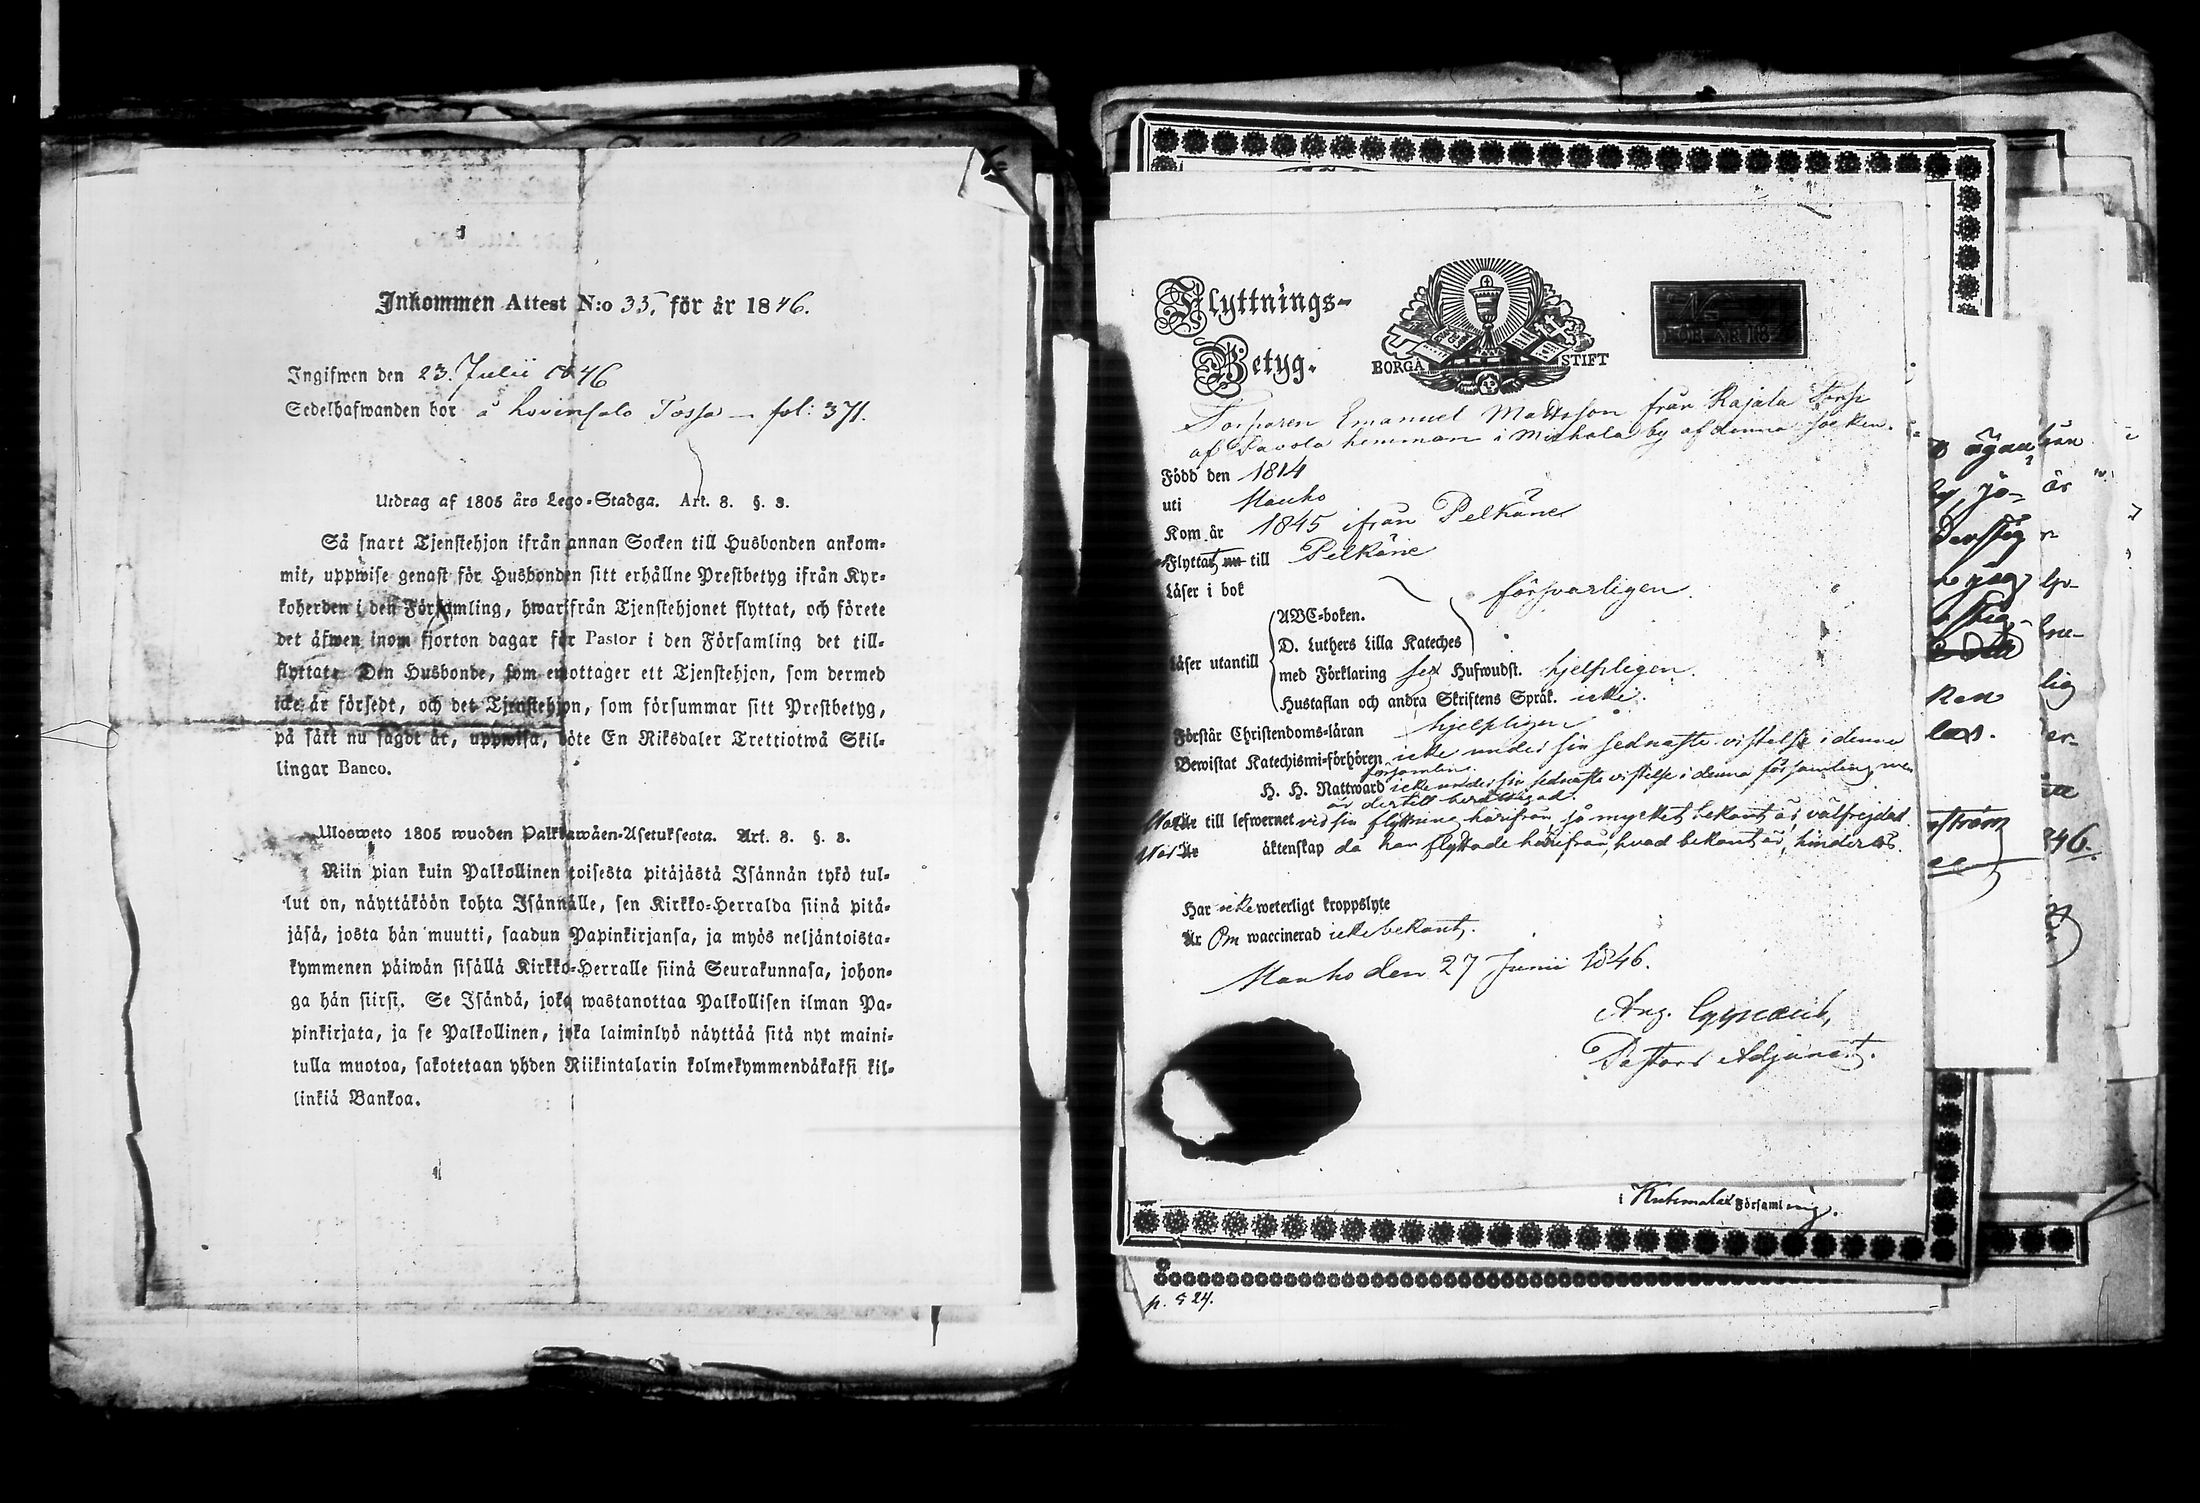 Inkommen Attest N:o 35, för år 1846.
Ingifwen den 23. Julii 1846
Sedelhafwanden bor å fol: 371.
Utdrag af 1805 års Lego-Stadga. Art. 8. §. 3.
Så snart Tjenstehjon ifrån annan Socken till Husbonden ankom-
mit, uppwise genast för Husbonden sitt erhållne Prestbetyg ifrån Kyr-
koherden i den Församling, hwarifrån Tjenstehjonet flyttat, och förete
det äfwen inom fjorton dagar för Pastor i den Församling det till-
flyttat. Den Husbonde, som emottager ett Tjenstehjon, som dermed
icke är försedt, och det Tjenstehjon, som försummar sitt Prestbetyg,
på sätt nu sagdt är, uppwisa, böte En Riksdaler Trettiotwå Skil-
lingar Banco.
Ulosweto 1805 wuoden Palkkawäen-Asetuksesta. Art. 8. §. 3.
Niin pian kuin Palkollinen toisesta pitäjästä Isännän tykö tul-
lut on, näyttäköön kohta Isännälle, sen Kirkko-Herralda siinä pitä-
jäsä, josta hän muutti, saadun Papinkirjansa, ja myös neljäntoista-
kymmenen päiwän sisällä Kirkko-Herralle siinä Seurakunnasa, johon-
ga hän siirsi. Se Isändä, joka wastanottaa Palkollisen ilman Pa-
pinkirjata, ja se Palkollinen, joka laiminlyö näyttää sitä nyt maini-
tulla muotoa, sakotetaan yhden Riikintalarin kolmekymmendäkaksi kil-
linkiä Bankoa.
Flyttnings-
Betyg.
BORGÅ STIFT
FÖR ÅR 18
Torparen Emanuel Mattsson från Rajala Torp
af Pavola hemman i Mickola by af denna socken.
Född den 1814
uti Hauho
Kom år 1845 ifrån Pelkäne
Flyttat nu till Pelkäne
Läser i bok försvarligen.
Läser utantill
ABC-boken.
D. Luthers Lilla Kateches
med Förklaring sex Hufwudst. hjelpligen.
Hustaflan och andra Skriftens Språk. icke.
Förstår Christendoms-läran hjelpligen
Bewistat Katechismi-förhören icke under sin sednaste vistelse i denna
församling.
H. H. Nattward icke under sin sednaste vistelse i denna församling men
är dertill berättigad.
till lefwernet vid sin flyttning härifrån, så mycket bekant är, välfrejdad.
äktenskap då han flyttade härifrån, hvad bekant är, hinderlös.
Har icke weterligt kroppslyte
Är Om waccinerad icke bekant.
Hauho den 27 Junii 1846.
Aug.
Pastors Adjunct.
i Kuhmalax Församling.
p. 524.